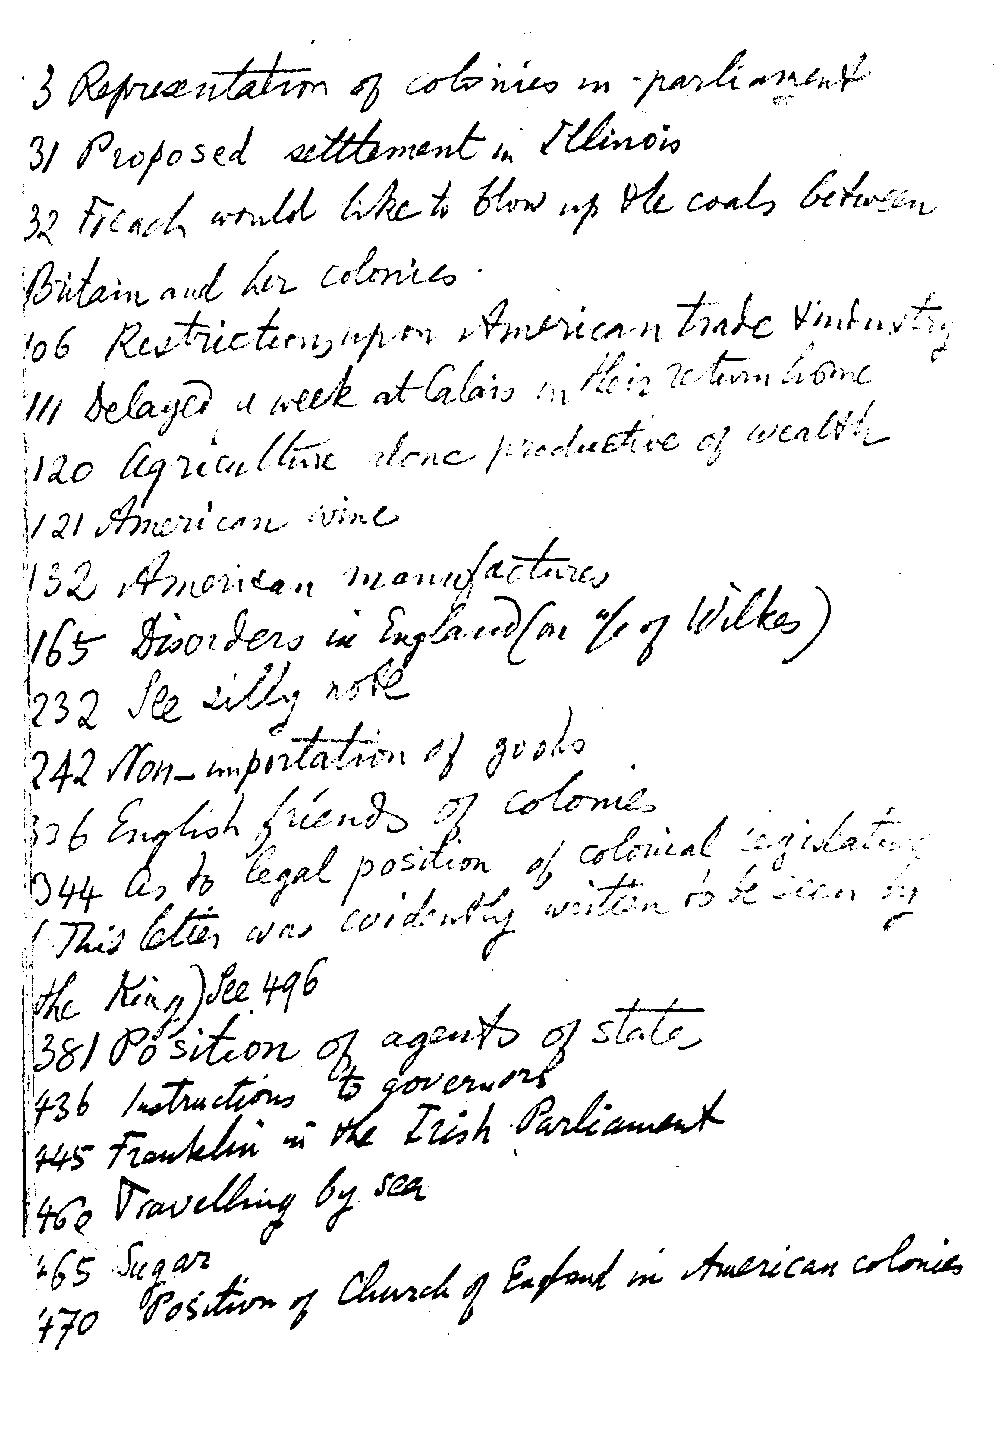 3 Representation of colonies in parliament
31 Proposed settlement in Illinois
32 French would like to blow up the coals between
Britain and her colonies.
106 Restrictions upon American trade & industry
111 Delayed a week at Calais in their return home
120 Agriculture alone productive of wealth
121 American wine
132 American manufactures
165 Disorders in England (on a/c of Wilkes)
232 See silly note
242 Non-importation of goods
336 English friends of colonies
344 As to legal position of colonial legislature
(This letter was evidently written to be seen by
the King) See 496
381 Position of agents of state
436 Instructions to governors
445 Franklin in the Irish Parliament
460 Travelling by sea
465 Sugar
470 Position of Church of England in American colonies